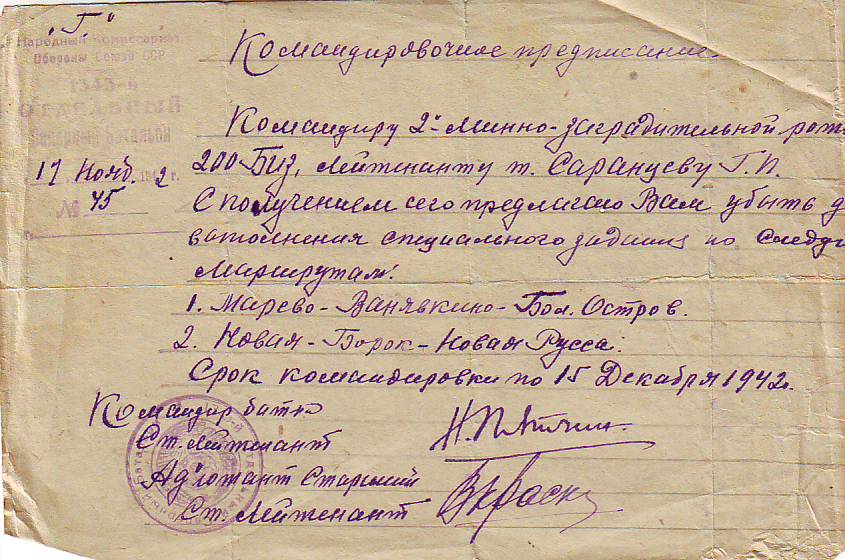 "Г"
Народный Комиссариат
Обороны Союза ССР
1343-й
ОТДЕЛЬНЫЙ
Саперный батальон
17 Нояб. 1942 г.
№ 45
Командировочное предписание
Командиру 2й Минно-заградительной рот
200 БИЗ, лейтенанту т. Саранцеву Г. П.
С получением сего предлагаю Вам убыть д
выполнения специального задания по следу
Маршрутам:
1. Марево - Ванявкино - Бол. Остров.
2. Новая - Борок - Новая Русса.
Срок командировки по 15 Декабря 1942г.
Командир батна
Ст. лейтенант
Ад'ютант Старший
Ст. Лейтенант